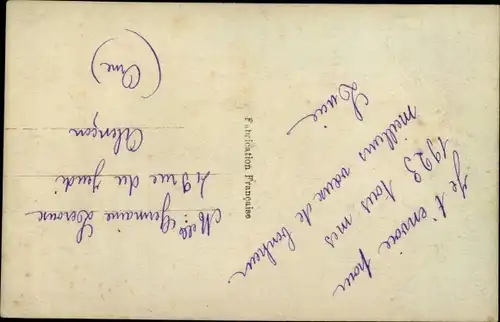 Je t'envoie pour
1923 tous mes
meilleurs vœux de bonheur
Lucie
Fabrication Française
Melle Germaine Leroux
49 rue du Jeudi
Alençon
(Orne)